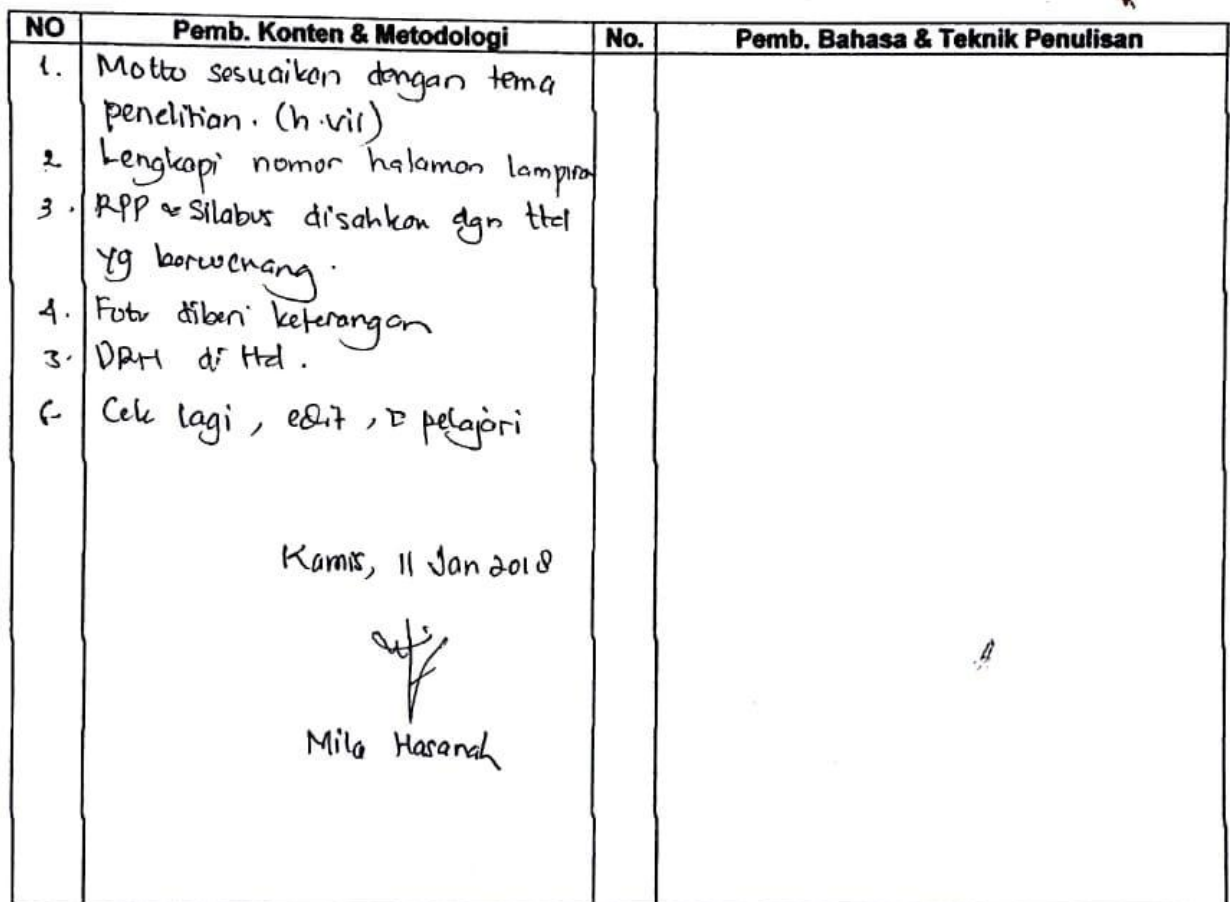 NO Pemb. Konten & Metodologi No. Pemb. Bahasa & Teknik Penulisan
1. Motto sesuaikan dengan tema
penelitian. (h.vii)
2 Lengkapi nomor halaman lampiran
3. RPP & Silabus disahkan dgn ttd
yg berwenang.
4. Foto diberi keterangan
3. DRH di ttd.
6- Cek lagi, edit, & pelajari
Kamis, 11 Jan 2018
Mila Hasanah